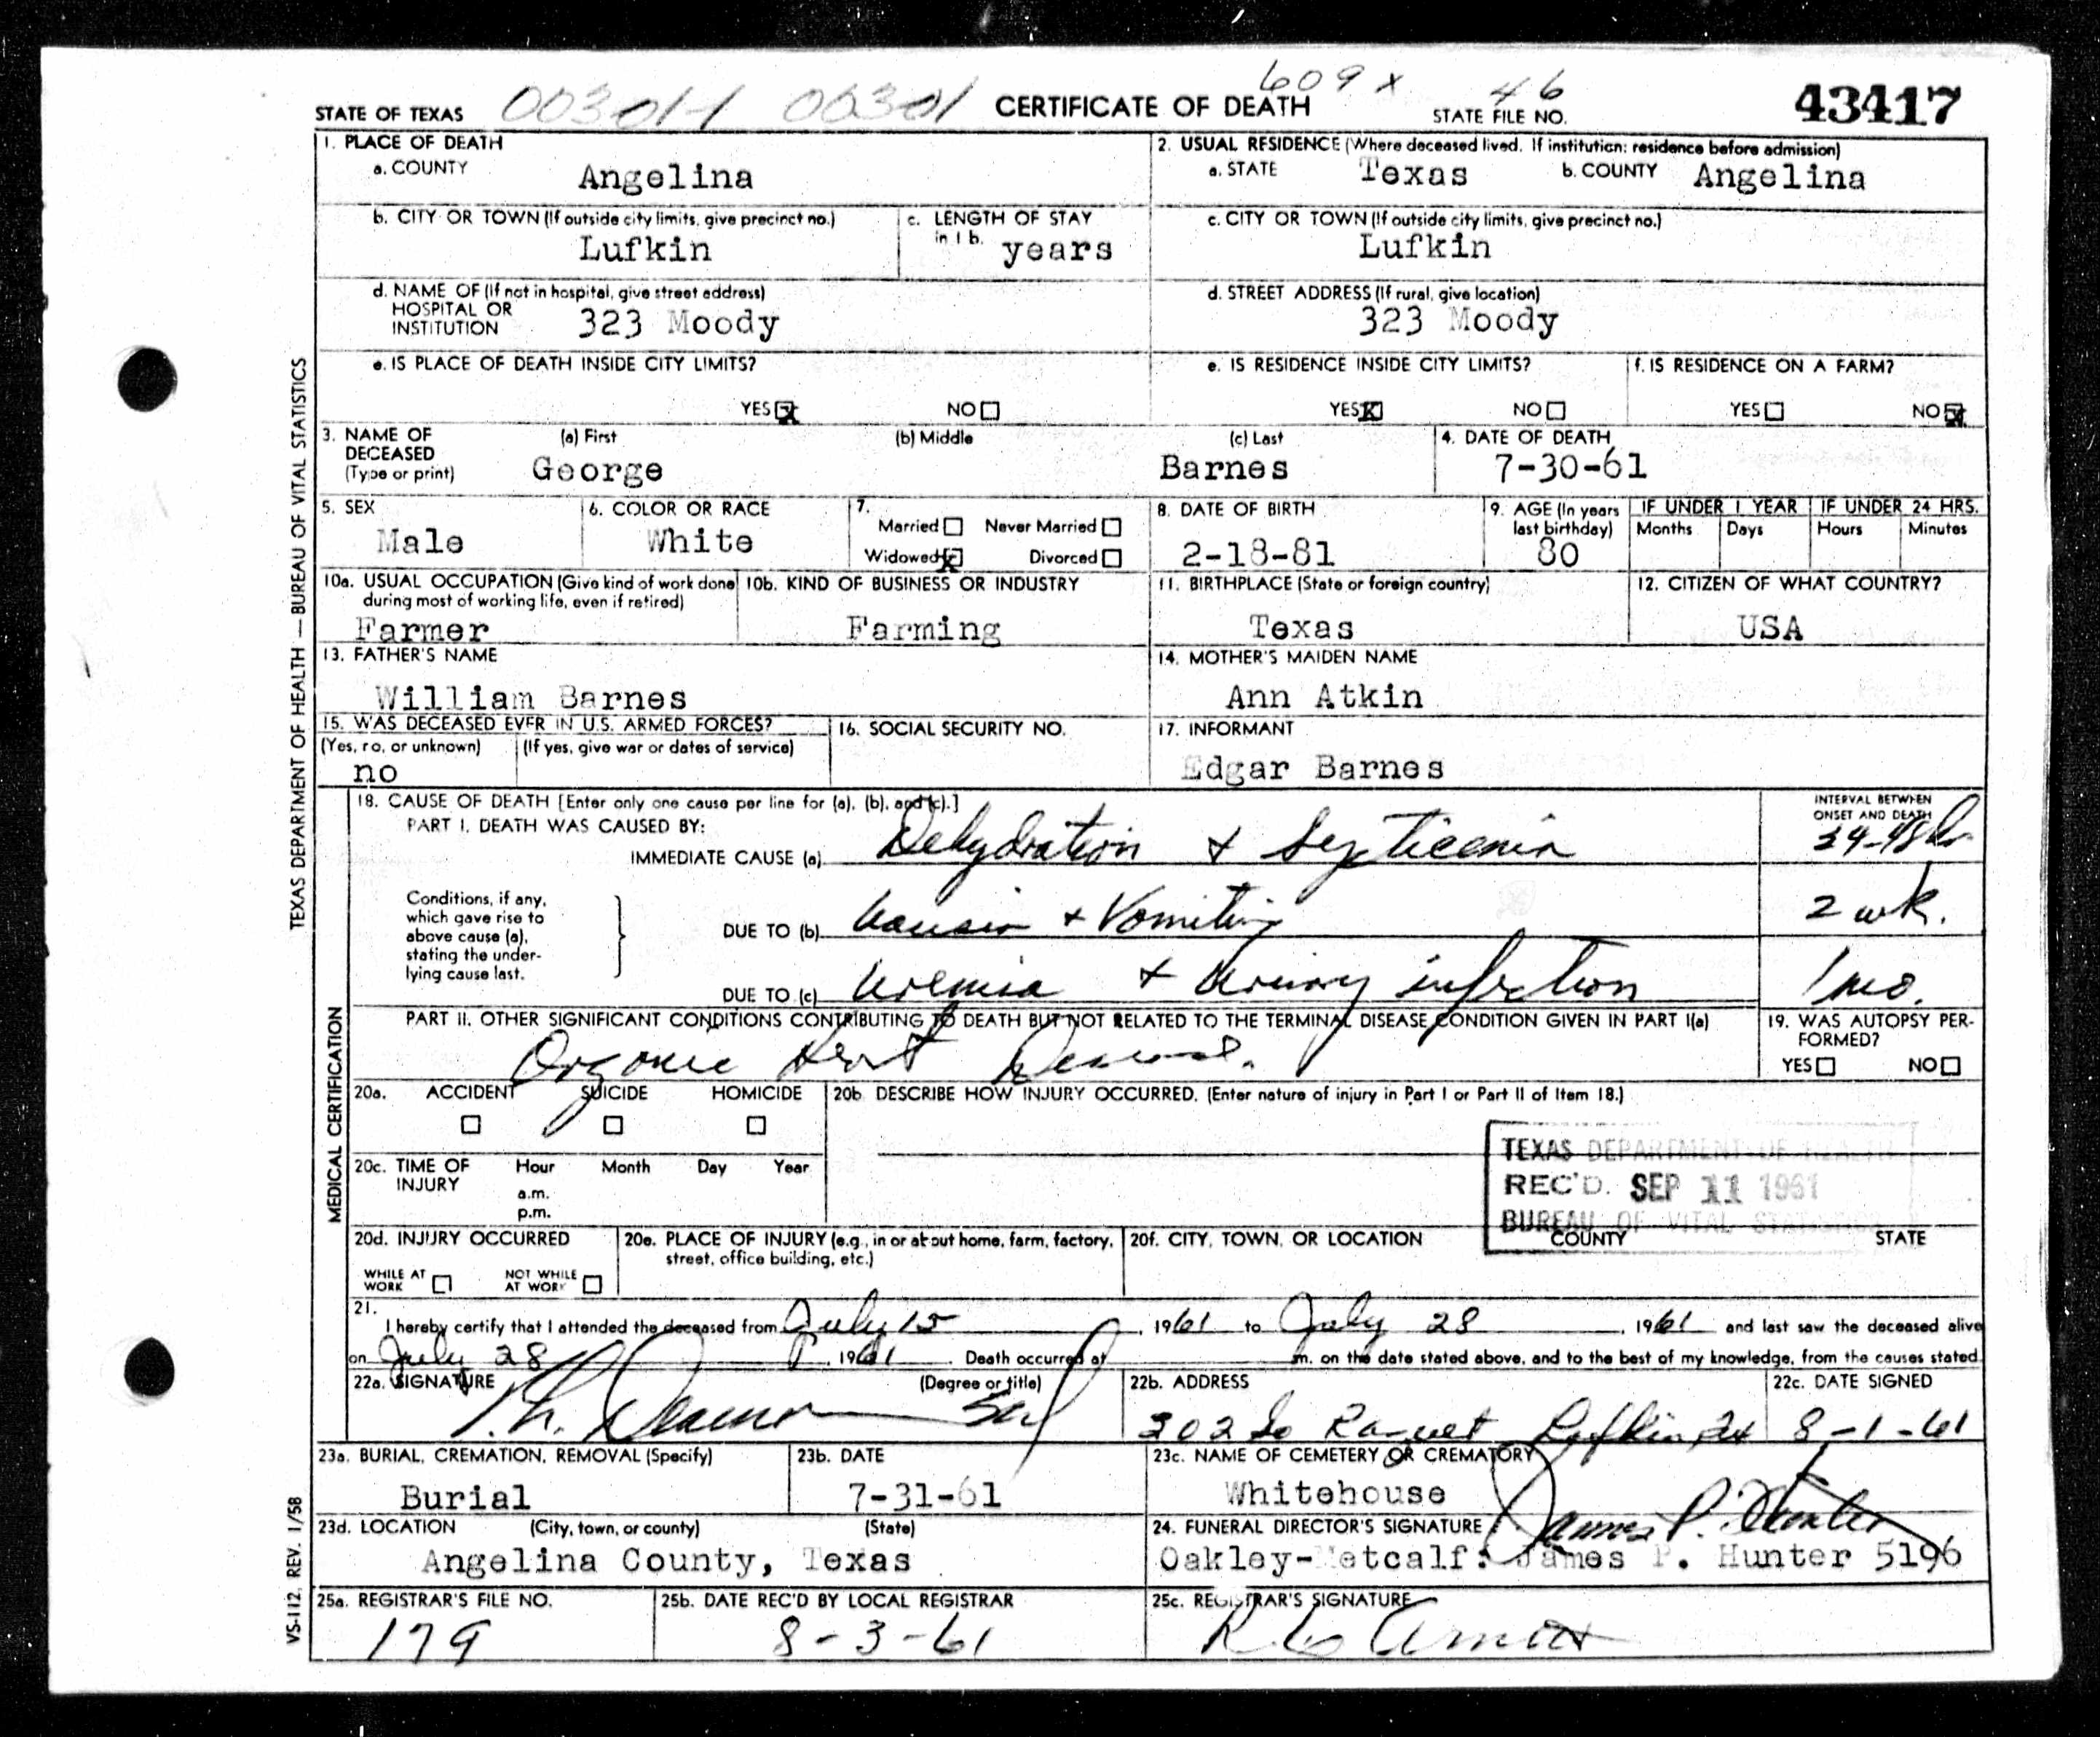 609 x 46
STATE OF TEXAS CERTIFICATE OF DEATH STATE FILE NO. 43417
1. PLACE OF DEATH
a. COUNTY Angelina
2. USUAL RESIDENCE (Where deceased lived. If institution: residence before admission)
a. STATE Texas b. COUNTY Angelina
b. CITY OR TOWN (If outside city limits, give precinct no.) Lufkin
c. LENGTH OF STAY in 1 b. years
c. CITY OR TOWN (If outside city limits, give precinct no.) Lufkin
d. NAME OF (If not in hospital, give street address)
HOSPITAL OR
INSTITUTION 323 Moody
d. STREET ADDRESS (If rural, give location)
323 Moody
e. IS PLACE OF DEATH INSIDE CITY LIMITS?
YES x NO
e. IS RESIDENCE INSIDE CITY LIMITS?
YES X NO
f. IS RESIDENCE ON A FARM?
YES NO x
3. NAME OF DECEASED (Type or print)
(a) First George
(b) Middle
(c) Last Barnes
4. DATE OF DEATH
7-30-61
5. SEX
Male
6. COLOR OR RACE
White
7. Married Never Married
Widowed x Divorced
8. DATE OF BIRTH
2-18-81
9. AGE (In years last birthday)
80
IF UNDER 1 YEAR Months Days
IF UNDER 24 HRS. Hours Minutes
10a. USUAL OCCUPATION (Give kind of work done during most of working life, even if retired)
Farmer
10b. KIND OF BUSINESS OR INDUSTRY
Farming
11. BIRTHPLACE (State or foreign country)
Texas
12. CITIZEN OF WHAT COUNTRY?
USA
13. FATHER'S NAME
William Barnes
14. MOTHER'S MAIDEN NAME
Ann Atkin
15. WAS DECEASED EVER IN U.S. ARMED FORCES?
(Yes, no, or unknown) (If yes, give war or dates of service)
no
16. SOCIAL SECURITY NO.
17. INFORMANT
Edgar Barnes
18. CAUSE OF DEATH [Enter only one cause per line for (a), (b), and (c).]
PART I. DEATH WAS CAUSED BY:
INTERVAL BETWEEN ONSET AND DEATH
IMMEDIATE CAUSE (a) Dehydration + Septicemia
Conditions, if any,
which gave rise to
above cause (a),
stating the under-
lying cause last.
DUE TO (b) Nausea + Vomiting 2 wk.
DUE TO (c) Uremia + Urinary infection 1 mo.
PART II. OTHER SIGNIFICANT CONDITIONS CONTRIBUTING TO DEATH BUT NOT RELATED TO THE TERMINAL DISEASE CONDITION GIVEN IN PART I(a)
Organic Heart Disease.
19. WAS AUTOPSY PER-
FORMED?
YES NO
20a. ACCIDENT SUICIDE HOMICIDE
20b. DESCRIBE HOW INJURY OCCURRED. (Enter nature of injury in Part I or Part II of Item 18.)
20c. TIME OF INJURY Hour Month Day Year
a.m.
p.m.
TEXAS DEPARTMENT OF HEALTH
REC'D. SEP 11 1961
BUREAU OF VITAL STATISTICS
20d. INJURY OCCURRED
WHILE AT WORK NOT WHILE AT WORK
20e. PLACE OF INJURY (e.g., in or about home, farm, factory, street, office building, etc.)
20f. CITY, TOWN, OR LOCATION COUNTY STATE
21.
I hereby certify that I attended the deceased from July 15, 1961 to July 28, 1961 and last saw the deceased alive
on July 28, 1961. Death occurred at m. on the date stated above, and to the best of my knowledge, from the causes stated.
22a. SIGNATURE (Degree or title)
22b. ADDRESS
302 So Lufkin
22c. DATE SIGNED
8-1-61
23a. BURIAL, CREMATION, REMOVAL (Specify)
Burial
23b. DATE
7-31-61
23c. NAME OF CEMETERY OR CREMATORY
Whitehouse
23d. LOCATION (City, town, or county) (State)
Angelina County, Texas
24. FUNERAL DIRECTOR'S SIGNATURE James P. Hunter
Oakley-Metcalf: James P. Hunter 5196
25a. REGISTRAR'S FILE NO.
179
25b. DATE REC'D BY LOCAL REGISTRAR
8-3-61
25c. REGISTRAR'S SIGNATURE
TEXAS DEPARTMENT OF HEALTH — BUREAU OF VITAL STATISTICS
MEDICAL CERTIFICATION
VS-112. REV. 1/58